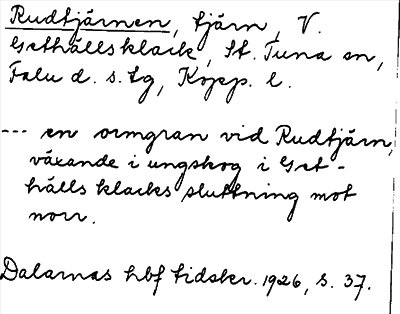 Rudtjärnen, tjärn, V.
Gethällsklack, St. Tuna sn,
Falu d. s. tg, Kopp. l.
--- en ormgran vid Rudtjärn,
växande i ungskog i Get-
hälls klacks sluttning mot
norr.
Dalarnas hbf tidskr. 1926, s. 37.